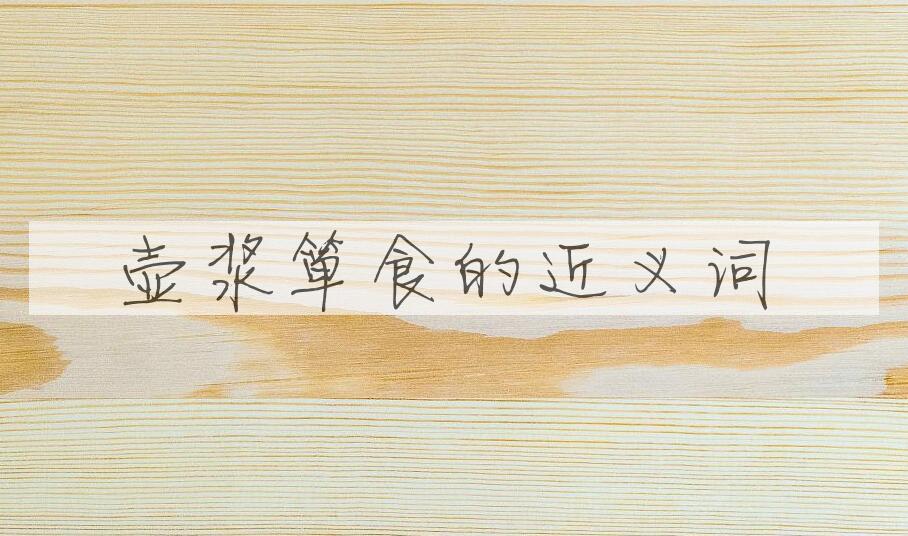 壶浆箪食的近义词